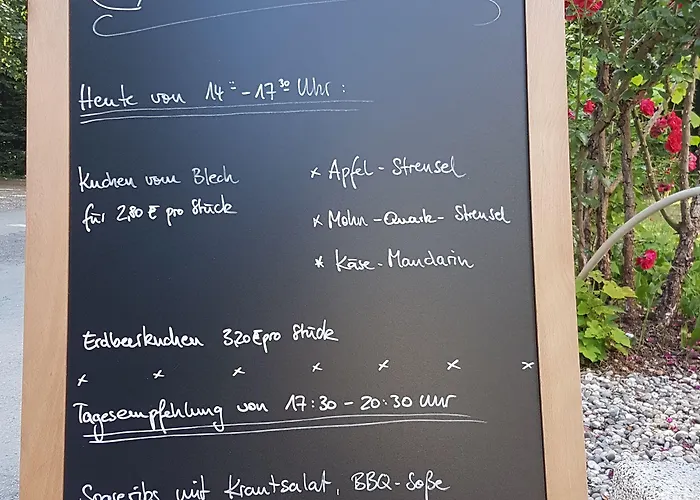 Heute von 14⁰⁰ - 17³⁰ Uhr :
Kuchen vom Blech
für 2,80 € pro Stück
x Apfel - Streusel
x Mohn - Quark - Streusel
* Käse - Mandarin
Erdbeerkuchen 3,20 € pro Stück
x x x x x x x
Tagesempfehlung von 17:30 - 20:30 Uhr
Spareribs mit Krautsalat, BBQ-Soße